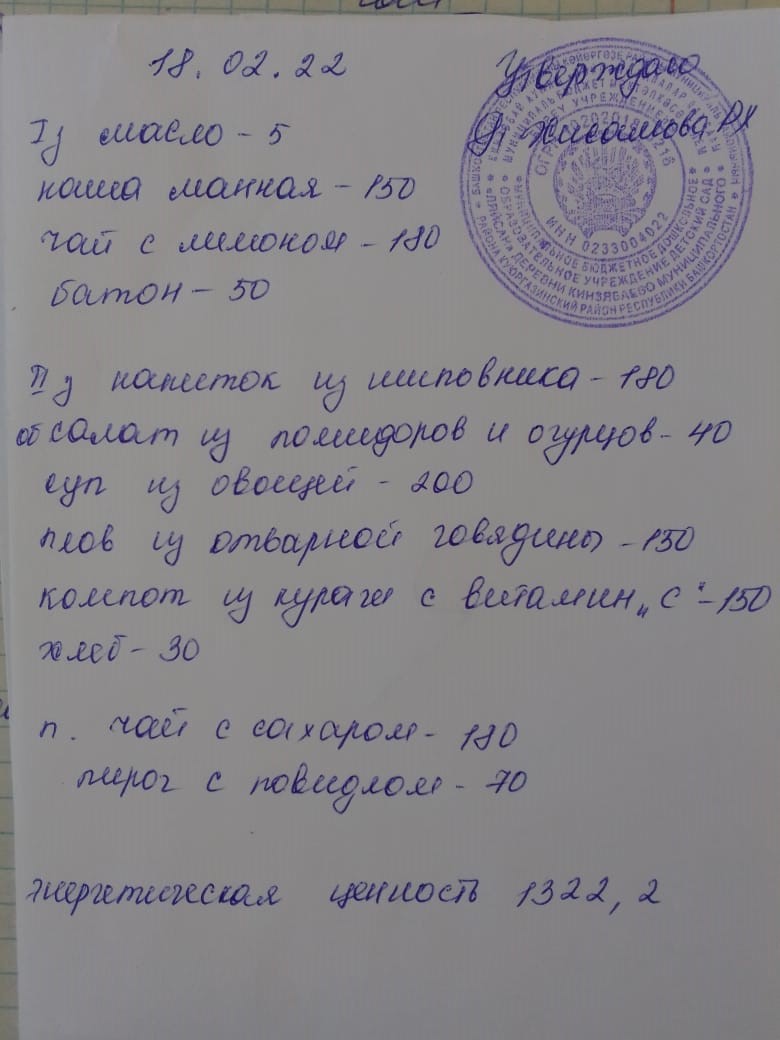 18.02.22
Утверждаю
Хисамова РХ
Iз масло - 5
каша манная - 150
чай с лимоном - 180
батон - 50
II з напиток из шиповника - 180
об салат из помидоров и огурцов - 40
суп из овощей - 200
плов из отварной говядины - 150
компот из кураги с витамин „С" - 150
хлеб - 30
п. чай с сахаром - 180
пирог с повидлом - 70
энергетическая ценность 1322,2
ИНН 0233004022
МУНИЦИПАЛЬНОЕ БЮДЖЕТНОЕ ДОШКОЛЬНОЕ
ОБРАЗОВАТЕЛЬНОЕ УЧРЕЖДЕНИЕ ДЕТСКИЙ САД
ДЕРЕВНИ КИНЗЯБАЕВО МУНИЦИПАЛЬНОГО
РАЙОНА КУЮРГАЗИНСКИЙ РАЙОН РЕСПУБЛИКИ БАШКОРТОСТАН